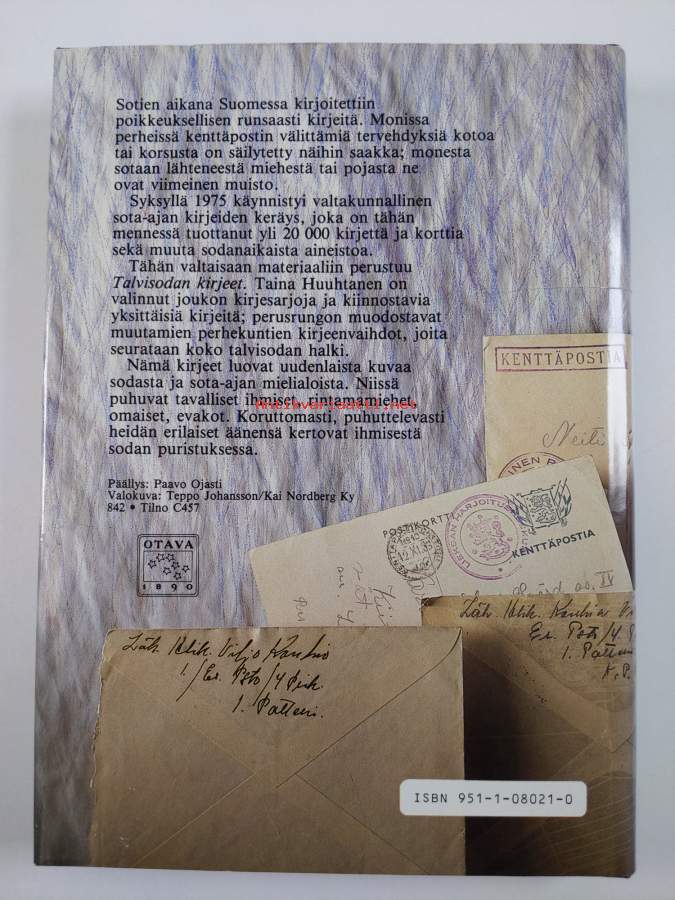 Sotien aikana Suomessa kirjoitettiin
poikkeuksellisen runsaasti kirjeitä. Monissa
perheissä kenttäpostin välittämiä tervehdyksiä kotoa
tai korsusta on säilytetty näihin saakka; monesta
sotaan lähteneestä miehestä tai pojasta ne
ovat viimeinen muisto.
Syksyllä 1975 käynnistyi valtakunnallinen
sota-ajan kirjeiden keräys, joka on tähän
mennessä tuottanut yli 20 000 kirjettä ja korttia
sekä muuta sodanaikaista aineistoa.
Tähän valtaisaan materiaaliin perustuu
Talvisodan kirjeet. Taina Huuhtanen on
valinnut joukon kirjesarjoja ja kiinnostavia
yksittäisiä kirjeitä; perusrungon muodostavat
muutamien perhekuntien kirjeenvaihdot, joita
seurataan koko talvisodan halki.
Nämä kirjeet luovat uudenlaista kuvaa
sodasta ja sota-ajan mielialoista. Niissä
puhuvat tavalliset ihmiset, rintamamiehet,
omaiset, evakot. Koruttomasti, puhuttelevasti
heidän erilaiset äänensä kertovat ihmisestä
sodan puristuksessa.
Antikvariaatti.net
Päällys: Paavo Ojasti
Valokuva: Teppo Johansson/Kai Nordberg Ky
842 • Tilno C457
OTAVA
1890
KENTTÄPOSTIA
Neiti
POSTIKORTTI
KENTTÄPOSTIA
Läh. Viljo
1. Patteri.
1. Patteri
K.P.
ISBN 951-1-08021-0